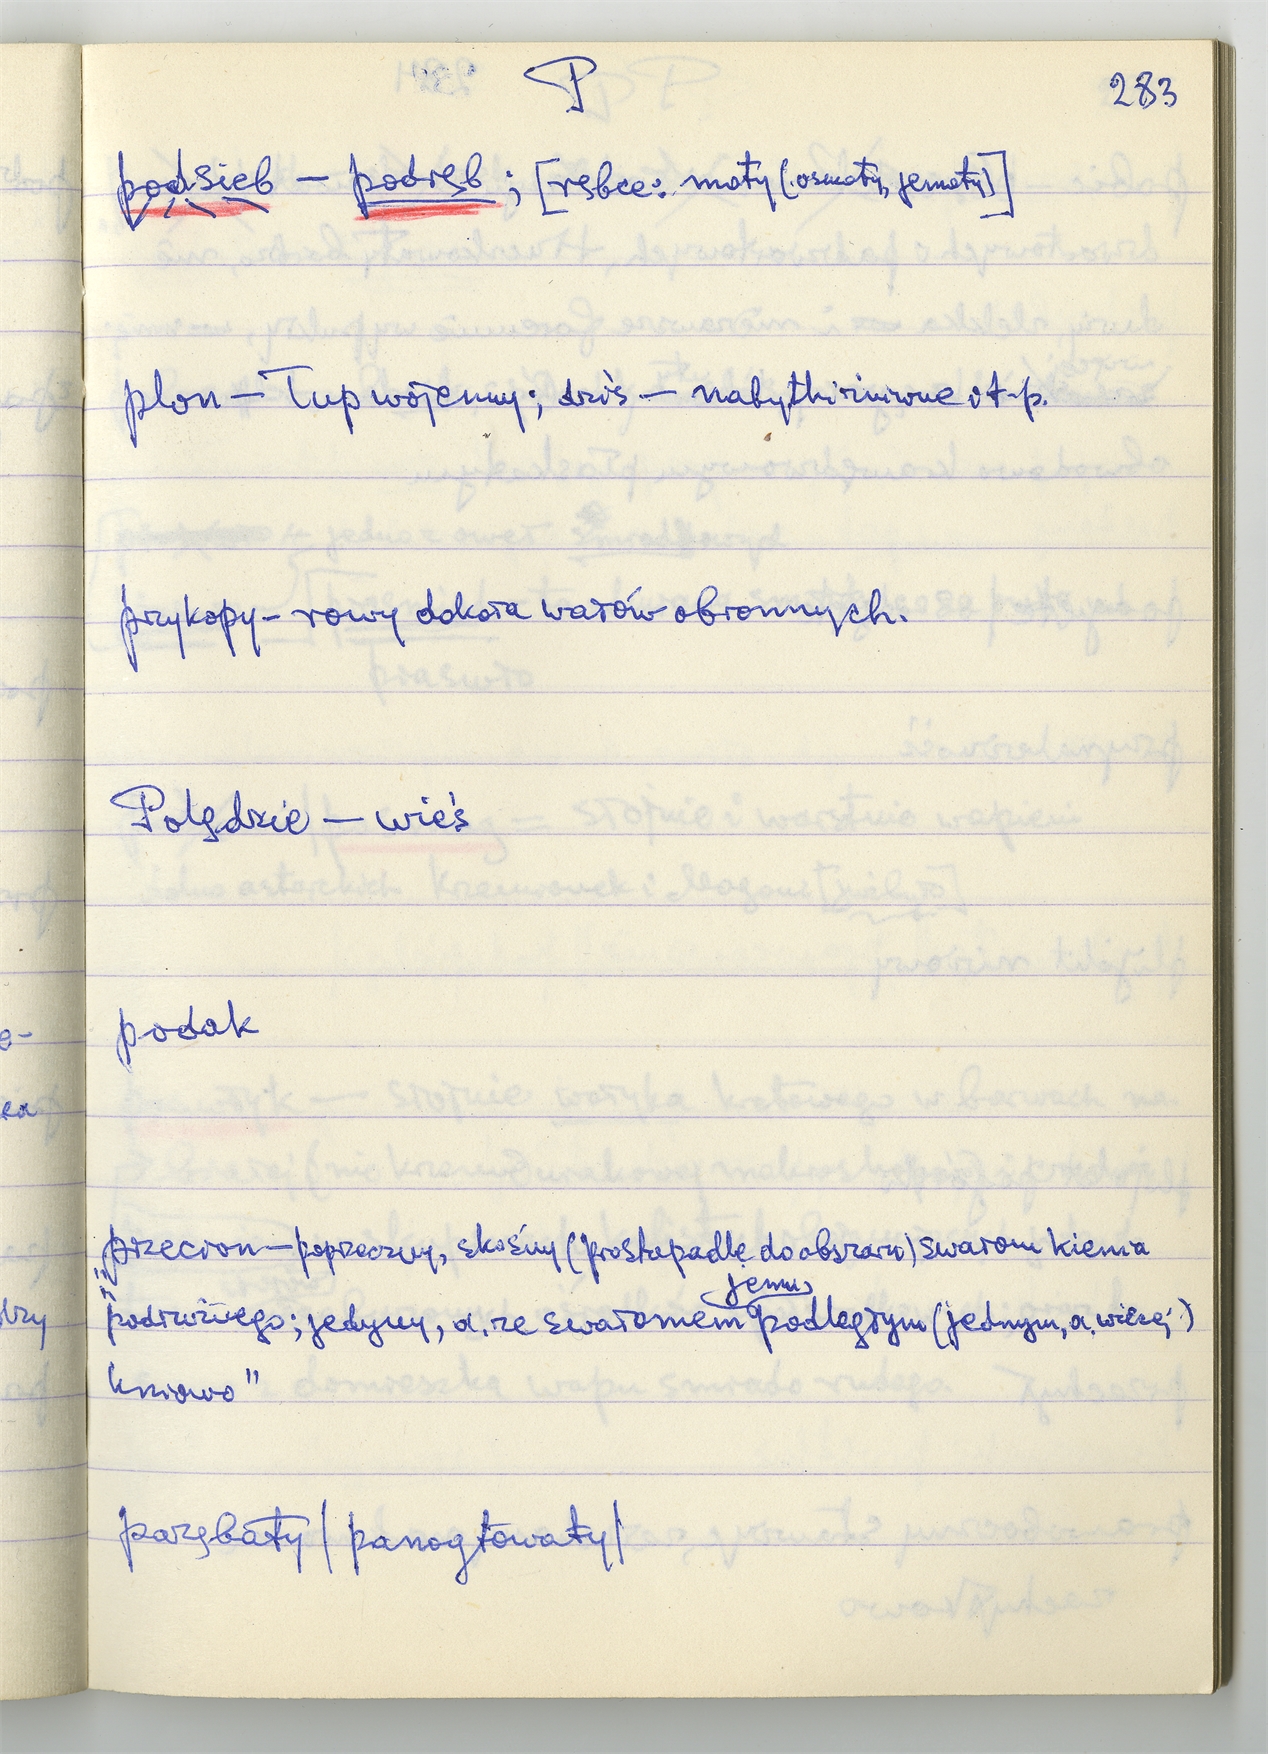 P 283
podsieb – podręb; [rębce: maty (osmaty, jematy)]
plon – Łup wojenny; dziś – nabytki żniwne i t-p.
przykopy – rowy dokoła wałów obronnych.
Polędzie – wieś
podak
przecion – poprzeczny, skośny (prostopadle do obszaru) swarom kienia
jemu
podróżnego; jedyny, a, ze swaromem podległym (jednym, a, więcej)
kniowo"
parębaty | panogtowaty |